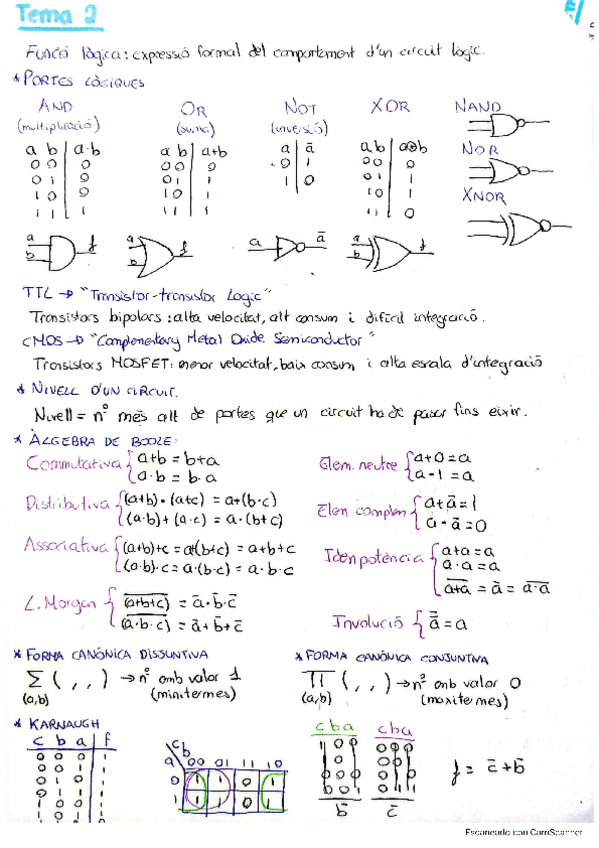 Tema 2
Funció lògica: expressió formal del comportament d'un circuit lògic.
* PORTES LÒGIQUES
AND OR NOT XOR NAND
(multiplicació) (suma) (inversió)
NOR
XNOR
a b | a·b a b | a+b a | ā a b | a⊕b
0 0 | 0 0 0 | 0 0 | 1 0 0 | 0
0 1 | 0 0 1 | 1 1 | 0 0 1 | 1
1 0 | 0 1 0 | 1 1 0 | 1
1 1 | 1 1 1 | 1 1 1 | 0
a b f a b f a ā a b f
TTL → "Transistor-transistor Logic"
Transistors bipolars: alta velocitat, alt consum i difícil integració.
CMOS → "Complementary Metal Oxide Semiconductor"
Transistors MOSFET: menor velocitat, baix consum i alta escala d'integració
* NIVELL D'UN CIRCUIT.
Nivell = nº més alt de portes que un circuit ha de pasar fins eixir.
* ÀLGEBRA DE BOOLE:
Commutativa { a+b = b+a
a·b = b·a
Elem. neutre { a+0 = a
a·1 = a
Distributiva { (a+b)·(a+c) = a+(b·c)
(a·b)+(a·c) = a·(b+c)
Elem complem { a+ā = 1
a·ā = 0
Associativa { (a+b)+c = a+(b+c) = a+b+c
(a·b)·c = a·(b·c) = a·b·c
Idenpotència { a+a = a
a·a = a
a̅+̅a̅ = ā = a̅·̅a̅
L. Morgan { (a̅+̅b̅+̅c̅) = ā·b̄·c̄
(a̅·̅b̅·̅c̅) = ā+b̄+c̄
Involució { a̿ = a
* FORMA CANÒNICA DISJUNTIVA
Σ ( , , ) → nº amb valor 1
(a,b) (minitermes)
* FORMA CANÒNICA CONJUNTIVA
∏ ( , , ) → nº amb valor 0
(a,b) (maxitermes)
* KARNAUGH
c b a f
0 0 0 1
0 0 1 1
0 1 0 1
c b
a 00 01 11 10
0 1 1 0 1
1 1 1 0 1
c b a c b a
b̄ c̄
f = c̄+b̄
Escaneado con CamScanner